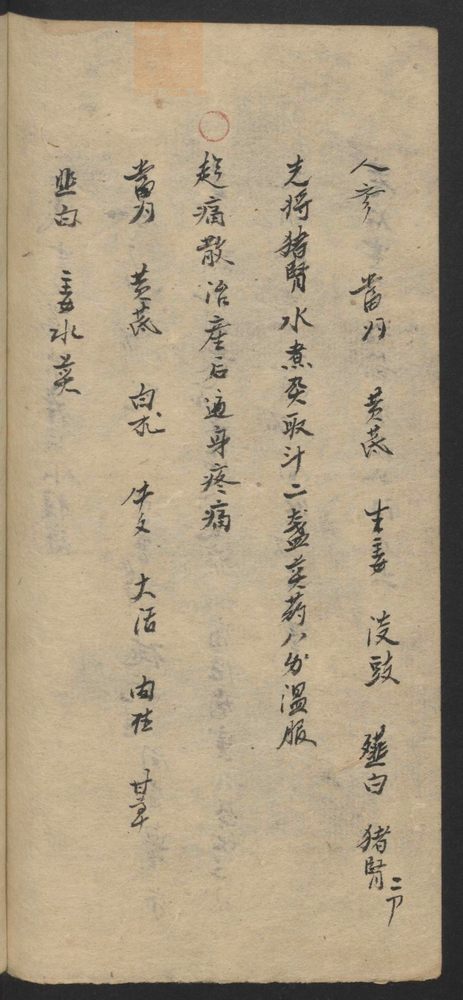 人参 當归 黄芪 生姜 淡豉 薤白 猪腎二
先将猪腎水煮熟取汁二盏煎药八分温服
趂痛散治產后遍身疼痛
當归 黄芪 白朮 牛夕 大活 肉桂 甘草
韭白 姜水煎